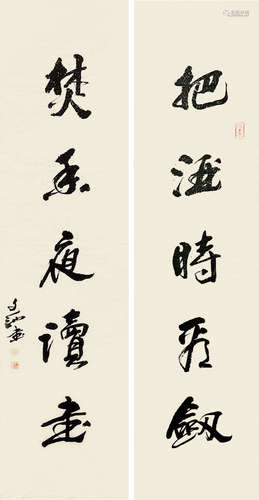 把酒時看劍
焚香夜讀書